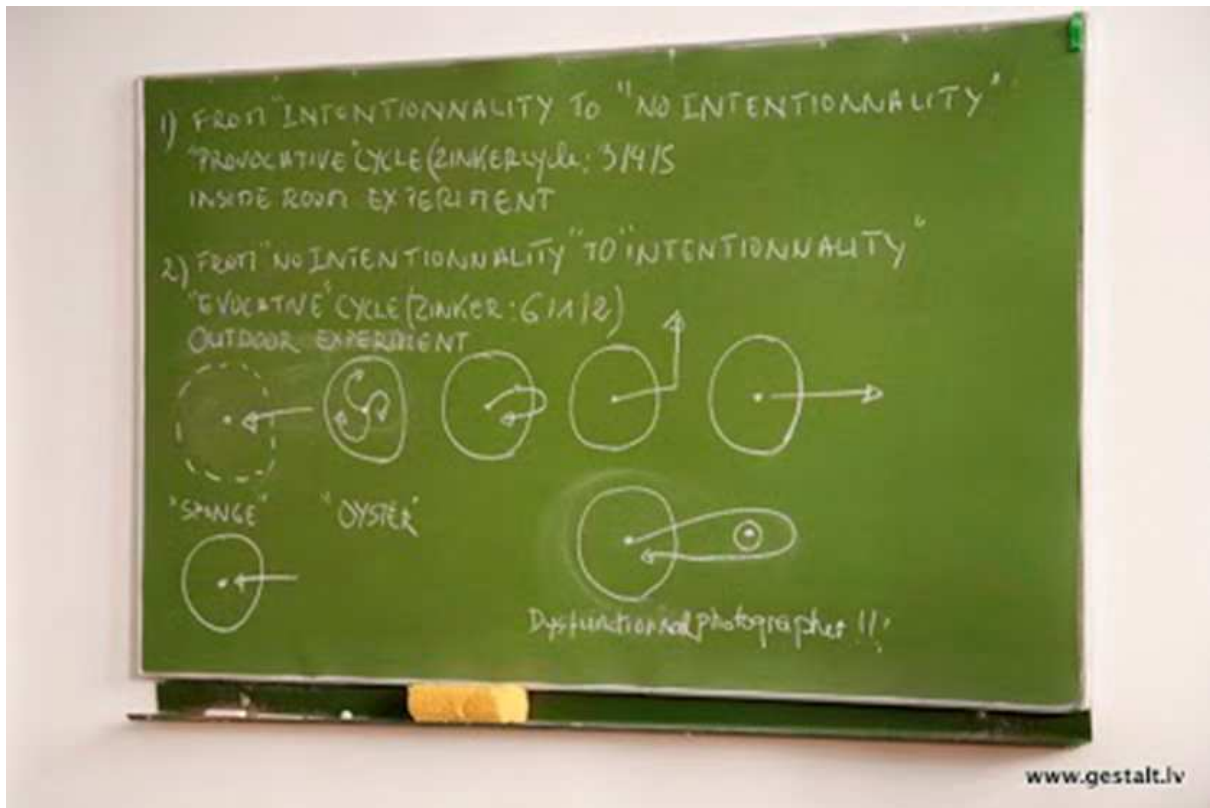 1) FROM "INTENTIONNALITY TO "NO INTENTIONNALITY"
"PROVOCATIVE" CYCLE (ZINKER cycle: 3/4/5
INSIDE ROOM EXPERIMENT
2) FROM "NO INTENTIONNALITY" TO "INTENTIONNALITY"
"EVOCATIVE" CYCLE (ZINKER: 6/1/2)
OUTDOOR EXPERIMENT
"SPONGE" "OYSTER"
Dysfunctionnal photographer !!!
www.gestalt.lv